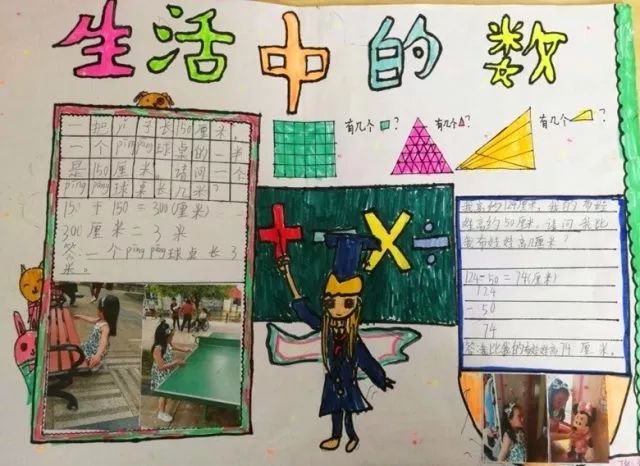 生活中的数
一把尺子长150厘米。
一个pīngpāng球桌的一半
是150厘米。请问一个
pīngpāng球桌长几米？
150+150=300(厘米)
300厘米=3米
答：一个pīngpāng球桌长3
米。
有几个？
有几个？
有几个？
+ - × ÷
我高约124厘米，我的布娃
娃高约50厘米，请问我比
我布娃娃高几厘米？
124-50=74(厘米)
124
-50
74
答：我比我的布娃娃高74厘米。